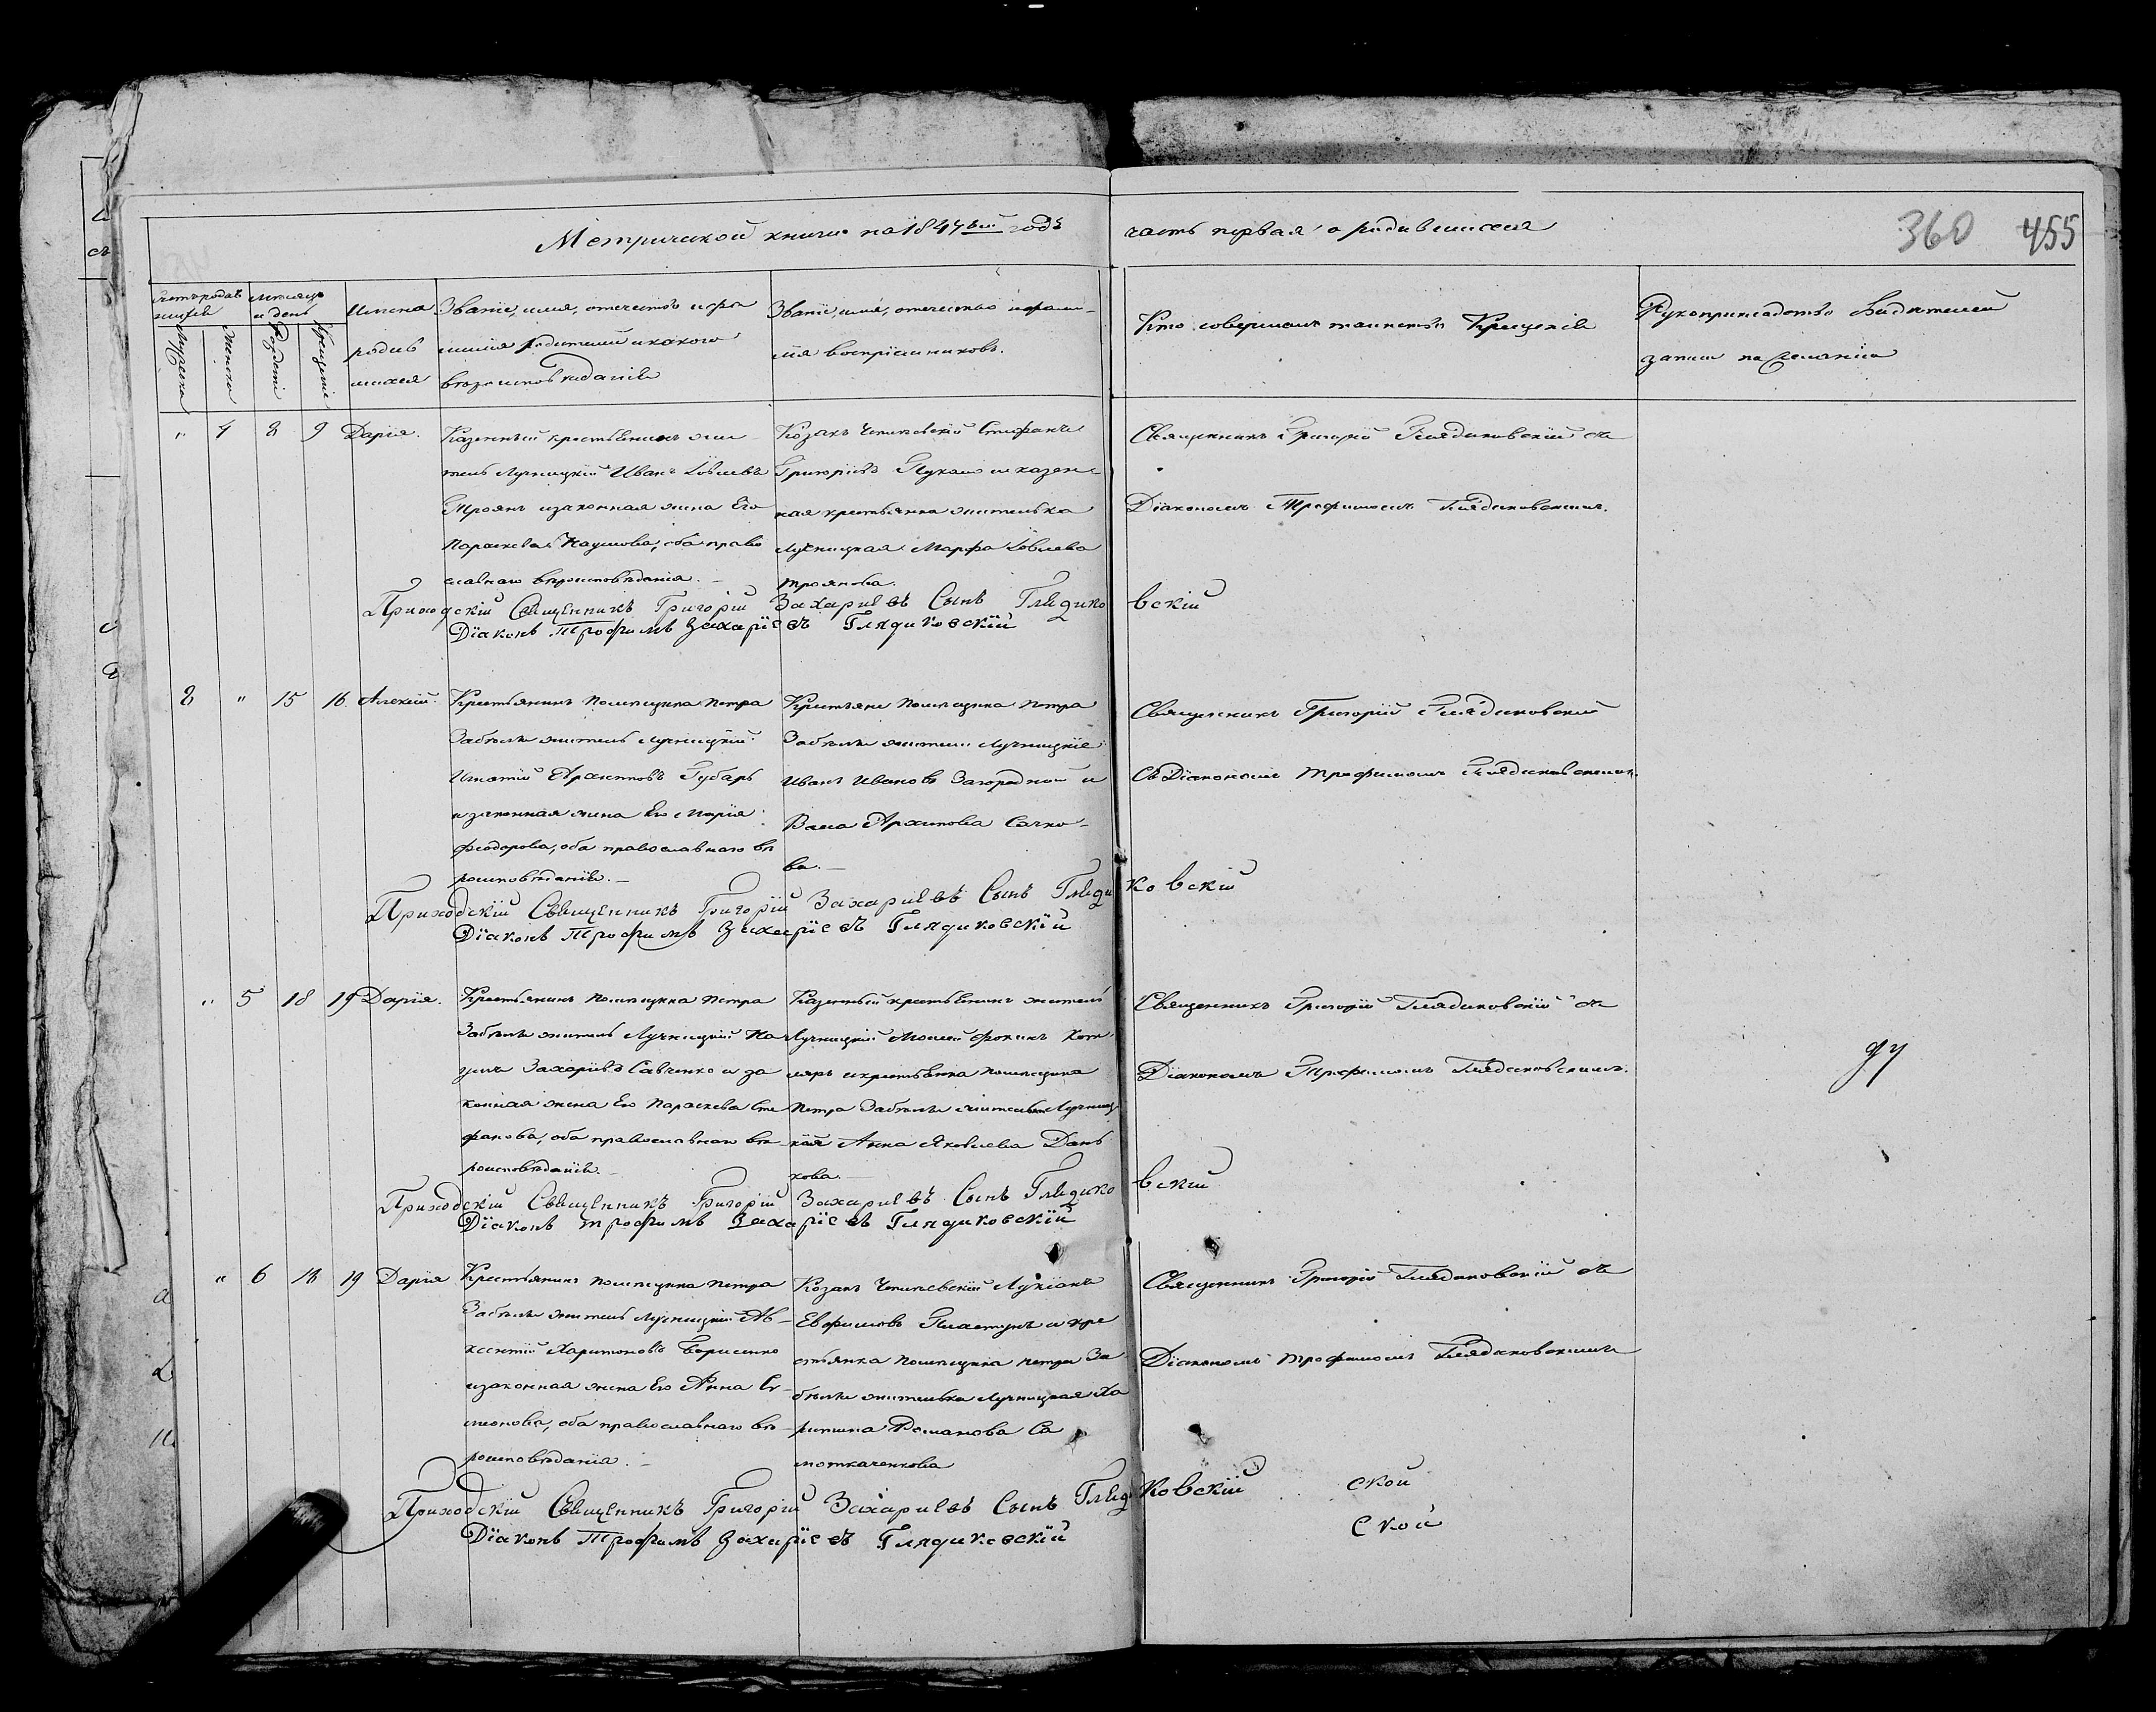 Метрической книги на 1847ый годъ часть первая о родившихся
360 455
Счетъ родив
шихся
Мужеска
Женска
Месяцъ
и день
Рождения
Крещения
Имена
родив
шихся
Званіе, имя, отечество и фа
милія родителей и какого
вероисповеданія
Званіе, имя, отечество и фами-
лія воспріемниковъ.
Кто совершалъ таинство Крещенія
Рукоприкладство свидетелей
записи по желанію
" 4 8 9 Дарія.
Казенный крестьянинъ жи
тель Лучницкій Иванъ Іовлевъ
Троянъ и законная жена Его
Параскева Наумова, оба право
славнаго вероисповеданія.
Козакъ Стефанъ
Григоріевъ и казен
ная крестьянка жителька
Лучницкая Марфа Іовлева
Троянова.
Священникъ Григорій Глядиковскій съ
Діакономъ Трофимомъ Глядиковскимъ.
Приходскій Священникъ Григорій Захаріевъ Сынъ Глядиковскій
Діаконъ Трофимъ Захаріевъ Глядиковскій
2 " 15 16 Алексій.
Крестьянинъ помещика Петра
Забелы житель Лучницкій
Игнатій Губарь
и законная жена Его Марія
Феодорова, оба православнаго ве
роисповеданія.
Крестьяне помещика Петра
Забелы жители Лучницкіе
Иванъ Ивановъ Загородній и
Васса Архипова Сачко-
ва.
Священникъ Григорій Глядиковскій
Съ Діакономъ Трофимомъ Глядиковскимъ.
Приходскій Священникъ Григорій Захаріевъ Сынъ Глядиковскій
Діаконъ Трофимъ Захаріевъ Глядиковскій
" 5 18 19 Дарія.
Крестьянинъ помещика Петра
Забелы житель Лучницкій На
умъ Захаріевъ Савченко и за
конная жена Его Параскева Сте
фанова, оба православнаго ве
роисповеданія.
Казенный крестьянинъ житель
Лучницкій Моисей Фокинъ Кот
ляръ и крестьянка помещика
Петра Забелы жителька Лучниц
кая Анна Яковлева Дань
кова.
Священникъ Григорій Глядиковскій съ
Діакономъ Трофимомъ Глядиковскимъ.
Приходскій Священникъ Григорій Захаріевъ Сынъ Глядиковскій
Діаконъ Трофимъ Захаріевъ Глядиковскій
" 6 18 19 Дарія
Крестьянинъ помещика Петра
Забелы житель Лучницкій Ав-
ксентій Харитоновъ Борисенко
и законная жена Его Анна Си-
меонова, оба православнаго ве-
роисповеданія.
Козакъ Лукіанъ
Евфимовъ Пластунъ и кре
стьянка помещика Петра За
белы жителька Лучницкая Ха
ритина Романова Са
моткаченкова
Священникъ Григорій Глядиковскій съ
Діакономъ Трофимомъ Глядиковскимъ
Приходскій Священникъ Григорій Захаріевъ Сынъ Глядиковскій
Діаконъ Трофимъ Захаріевъ Глядиковскій
ской
ской